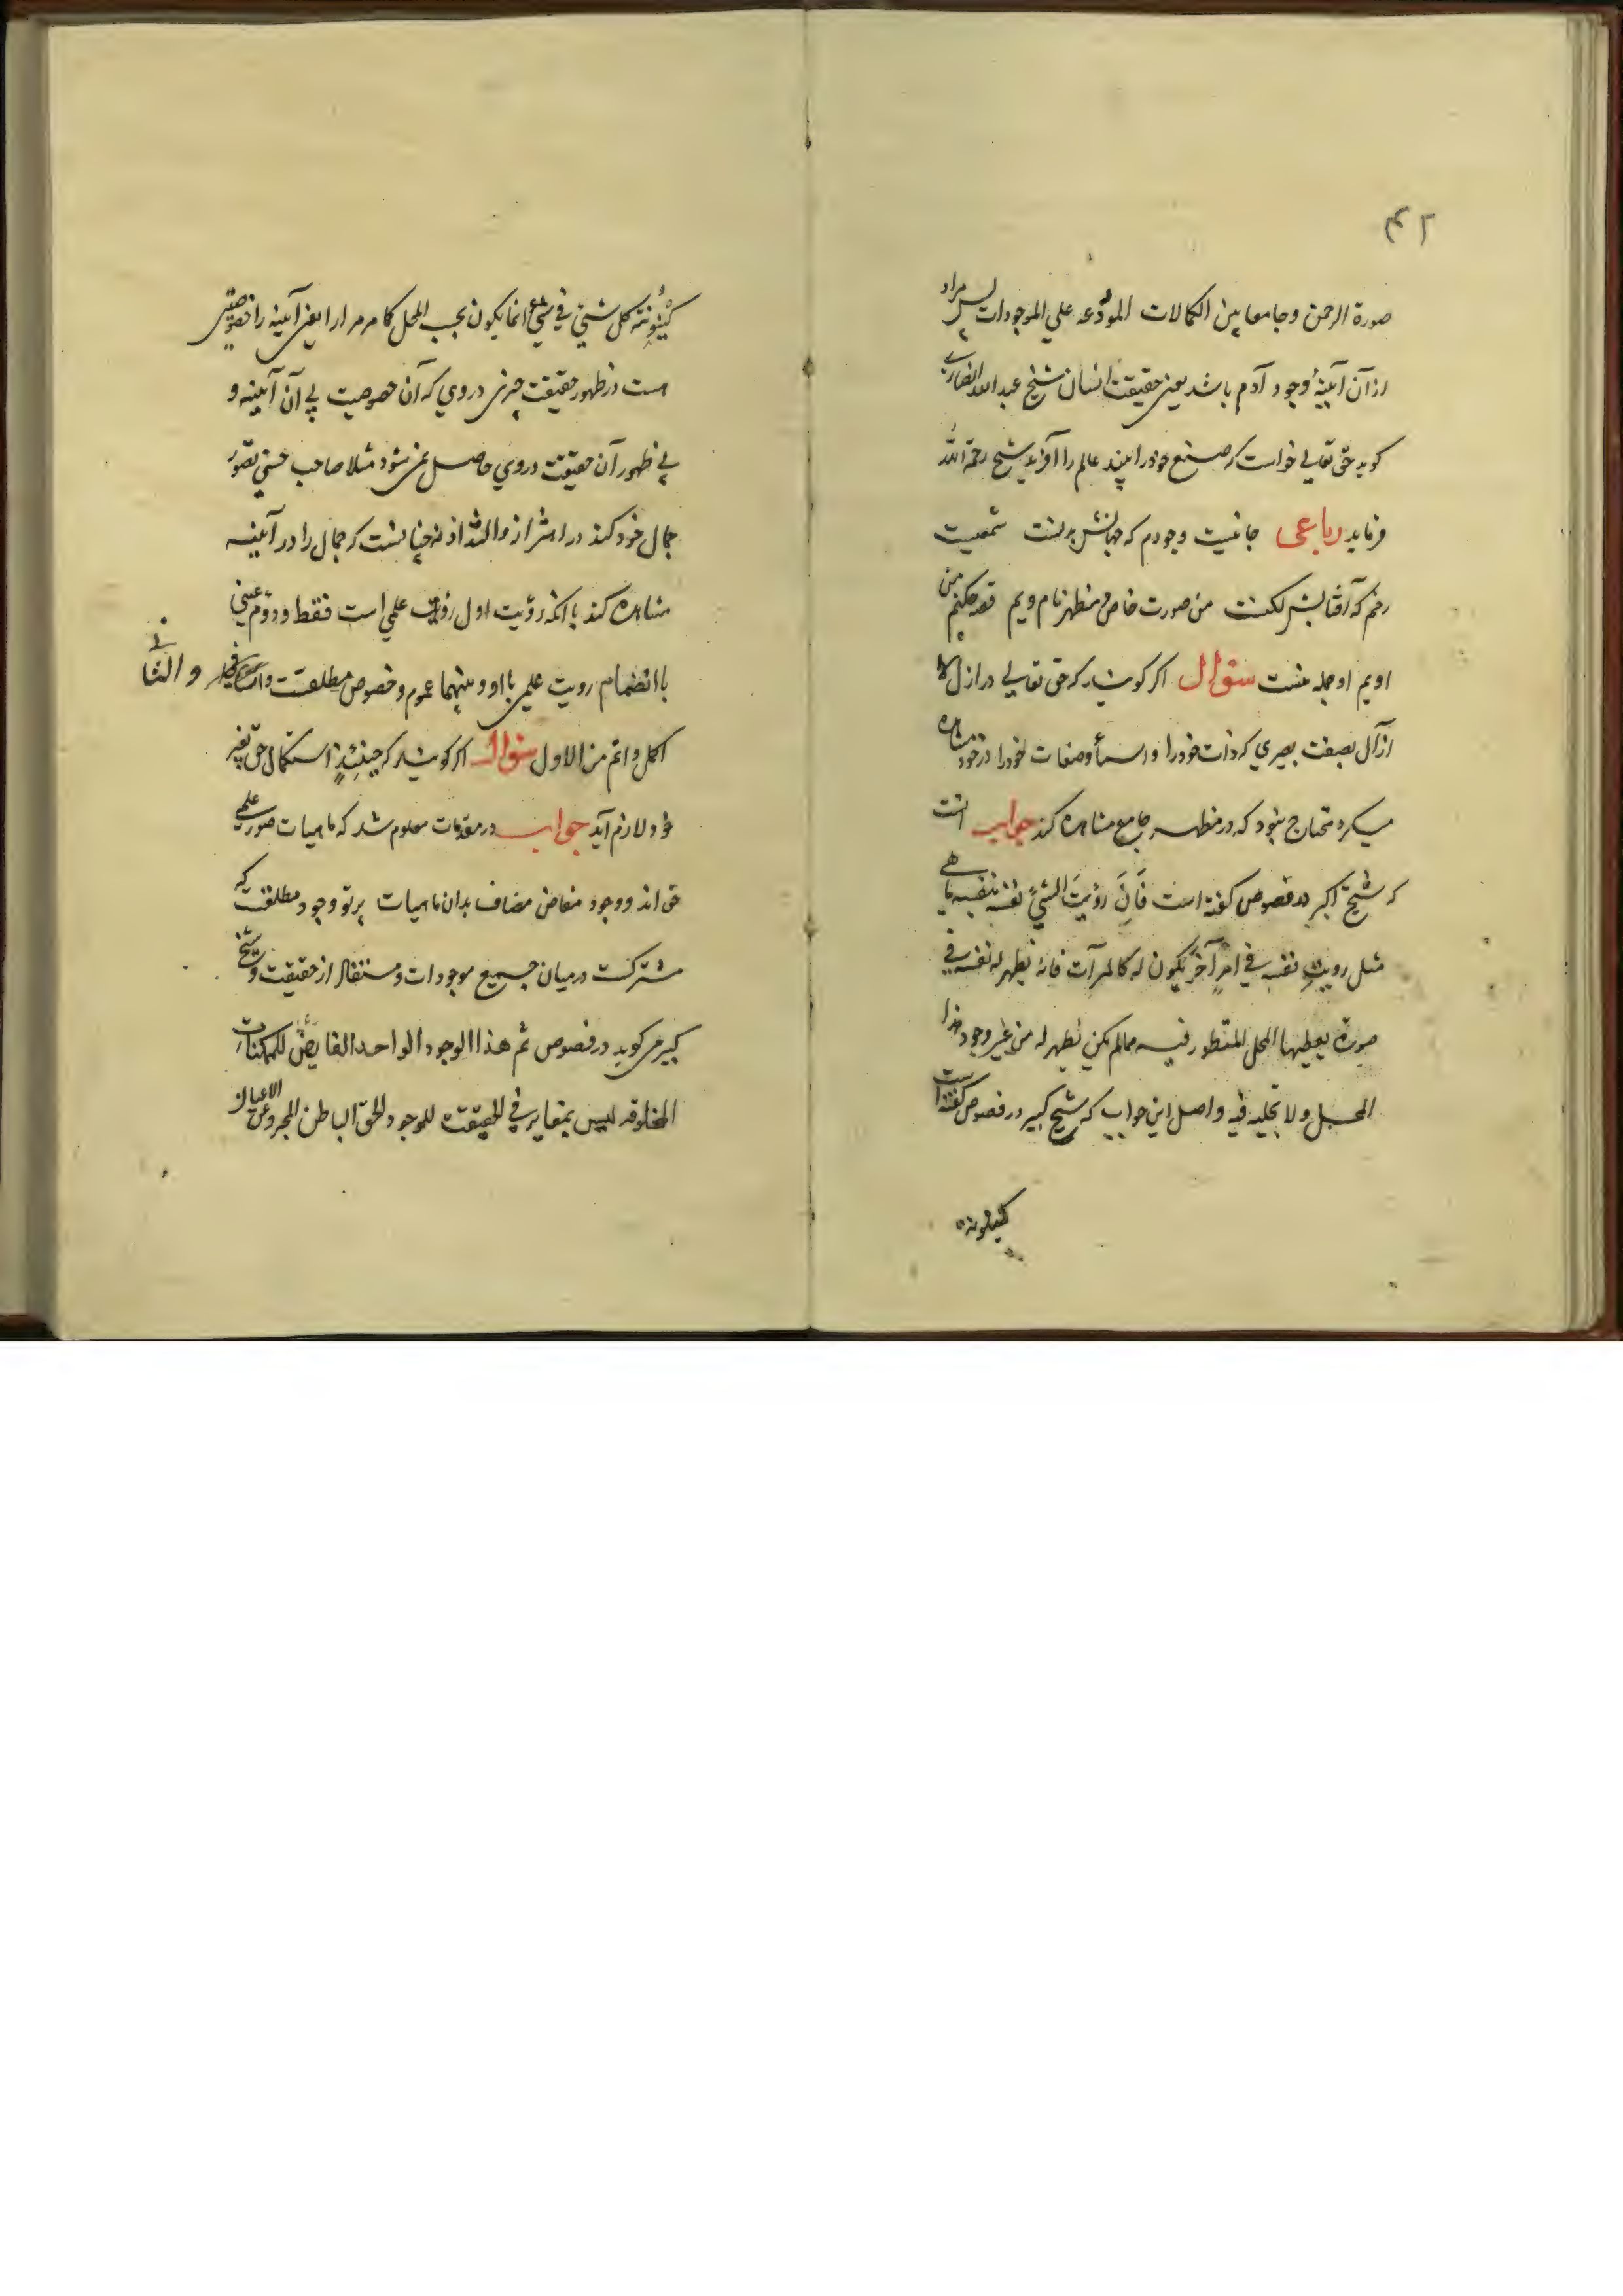 ۴۲
صورة الرحمن و جامعا بین الکمالات المودعه علی الموجودات پس مراد
از آن آیینهٔ وجود آدم باشد یعنی حقیقت انسان شیخ عبدالله انصاری
کوید حق تعالی خواست که صنع خود را بیند عالم را آفرید شیخ رحمة الله
فرماید رباعی جانیست وجودم که جهانش بدنست شمعیست
رخم که آفتابش لکنست من صورت خاص و مظهر نام ویم قصه چکنم من
اویم او جمله منست سؤال اکر کویند که حق تعالی در ازل
بصفت بصیری که ذات خود را و اسماء و صفات خود را در خود مشاهده
میکرد محتاج نبود که در مظهر جامع مشاهده کند جواب آنست
که شیخ اکبر در فصوص کفته است فَاِنَّ رؤیتَ الشئ نفسه بنفسه ما هی
مثل رویت نفسه فی امرٍ آخر یکون له کالمرآت فانه یظهر له نفسه فی
صورة یعطیها المحل المنظور فیه مما لم یکن یظهر له من غیر وجود هذا
المحل ولا تجلیه فیه و اصل این جواب که شیخ کبیر در فصوص کفته است
کینونة
کَیْنُونَة کل شئ فی شئ انما یکون بحسب المحل کما مر مرارا یعنی آیینه را خصوصیتی
هست در ظهور حقیقت چیزی در وی که آن خصوصیت بی آن آیینه و
بی ظهور آن حقیقت در وی حاصل نمی شود مثلا صاحب حسنی تصور
جمال خود کند در اهتزاز و التذاذ نه چنانست که جمال را در آیینه
مشاهده کند با آنکه رؤیت اول رؤیت علمی است فقط و دوم عینی
با انضمام رویت علمی با او و بینهما عموم و خصوص مطلقست و الثانی
اکمل و اتم من الاول سؤال اکر کویند که حینئذٍ استکمال حق بغیر
خود لازم آید جواب در مقدمات معلوم شد که ماهیات صور علمی
حق اند و وجود مفاض مضاف بدان ماهیات پرتو وجود مطلقست که
مشترکست در میان جمیع موجودات و مستفاد از حقیقت و شیخ
کبیر می کوید در فصوص ثم هذا الوجود الواحد الفایض للممکنات
المخلوقه لیس بمغایر فی الحقیقة للوجود الحق الباطن المجرد عن الاعیان